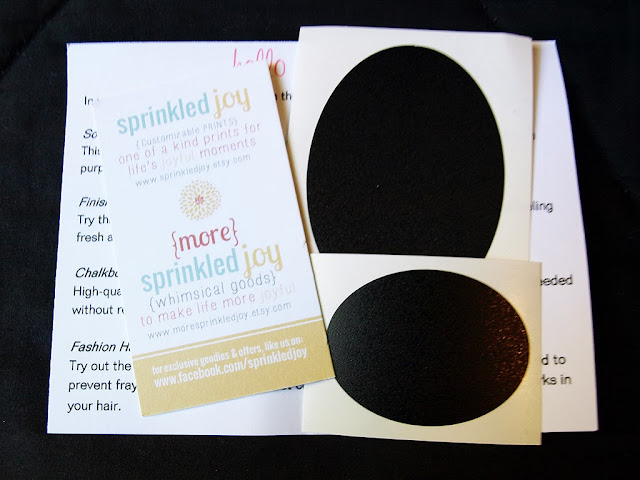 hello
In
the
So
This
purp
Finis
Try th
fresh a
Chalkbo
High-qua
without re
Fashion H
Try out the
prevent fray
your hair.
eling
eeded
d to
rks in
sprinkled joy
{Customizable PRINTS}
one of a kind prints for
life's joyful moments
www.sprinkledjoy.etsy.com
{more}
sprinkled joy
{whimsical goods}
to make life more joyful
www.moresprinkledjoy.etsy.com
for exclusive goodies & offers, like us on:
www.facebook.com/sprinkledjoy